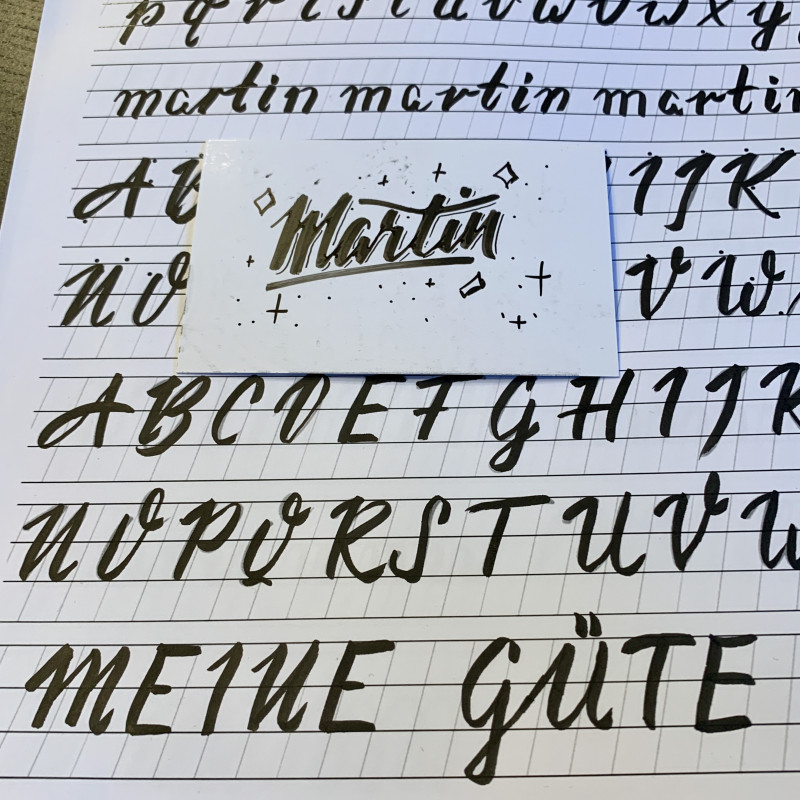 p q r s t u v w x y
martin martin martin
A B I J K
Martin
N O V W
A B C D E F G H I J K
N O P Q R S T U V W
MEINE GÜTE